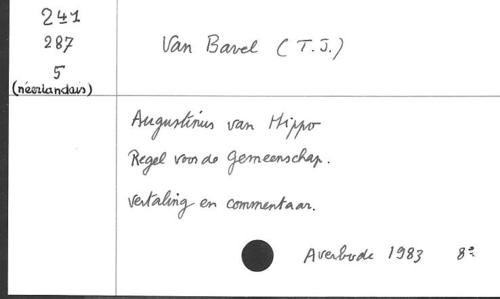 241
287
5
(néerlandais)
Van Bavel (T.J.)
Augustinus van Hippo
Regel voor de Gemeenschap.
vertaling en commentaar.
Averbode 1983 8°